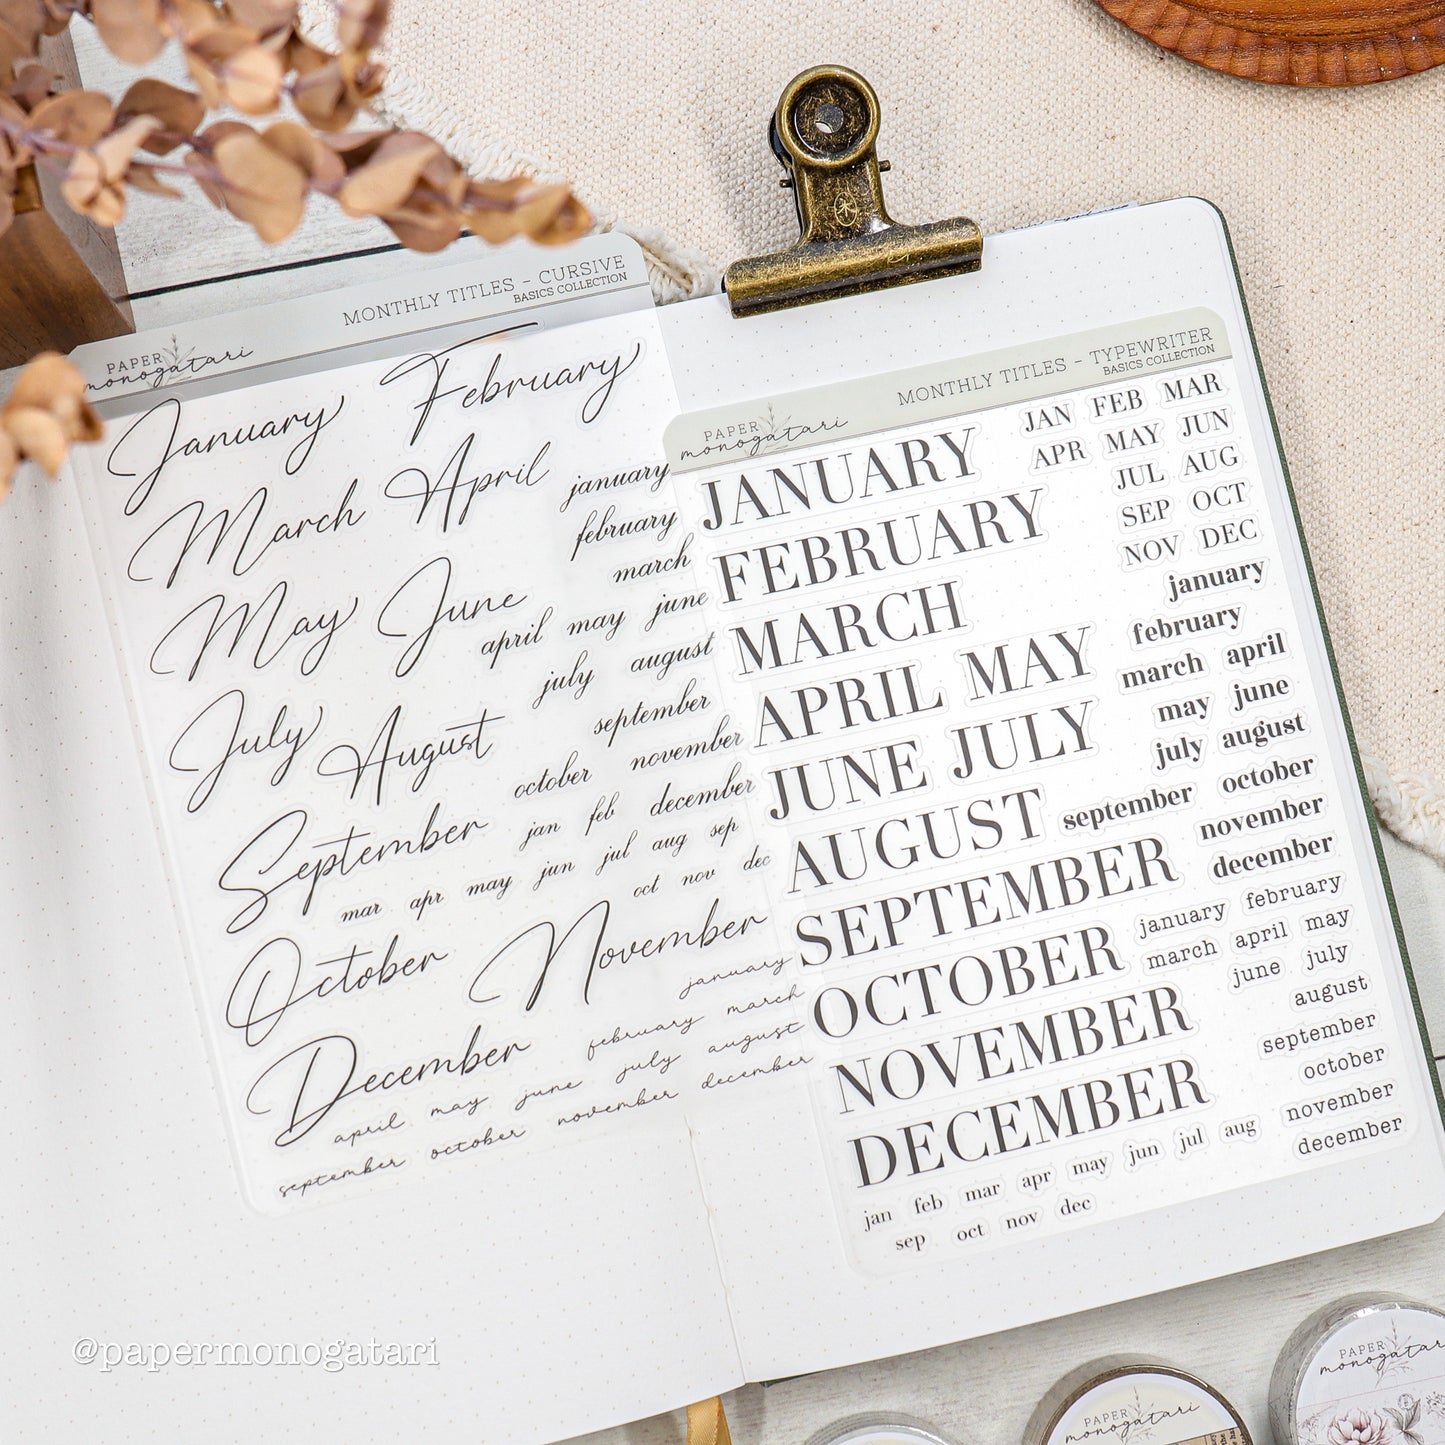 MONTHLY TITLES - CURSIVE
BASICS COLLECTION
PAPER
monogatari
January February
March April
january
february
march
May June
april may june
july august
July August
september
october november
September
jan feb december
mar apr may jun jul aug sep
oct nov dec
October November
january
february march
December
april may june july august
september october november december
MONTHLY TITLES - TYPEWRITER
BASICS COLLECTION
PAPER
monogatari
JAN FEB MAR
APR MAY JUN
JUL AUG
SEP OCT
NOV DEC
JANUARY
FEBRUARY
MARCH
APRIL MAY
JUNE JULY
AUGUST
SEPTEMBER
OCTOBER
NOVEMBER
DECEMBER
january
february
march april
may june
july august
september october
november
december
january february
march april may
june july
august
september
october
november
december
jan feb mar apr may jun jul aug
sep oct nov dec
@papermonogatari
PAPER
monogatari
PAPER
monogatari